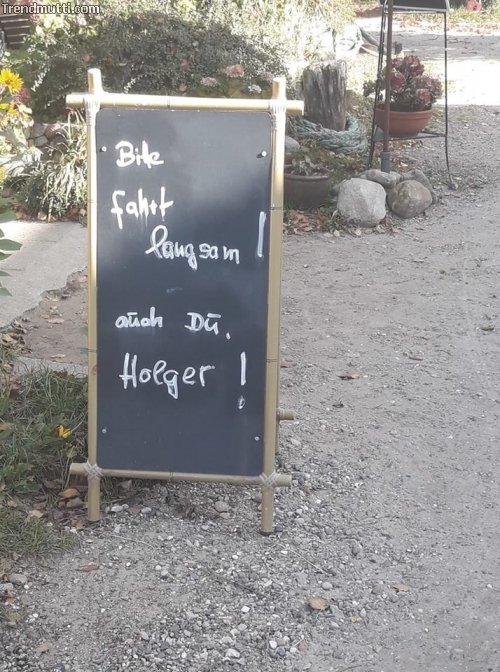 Trendmutti.com
Bitte
fahrt
langsam!
auch Du,
Holger!